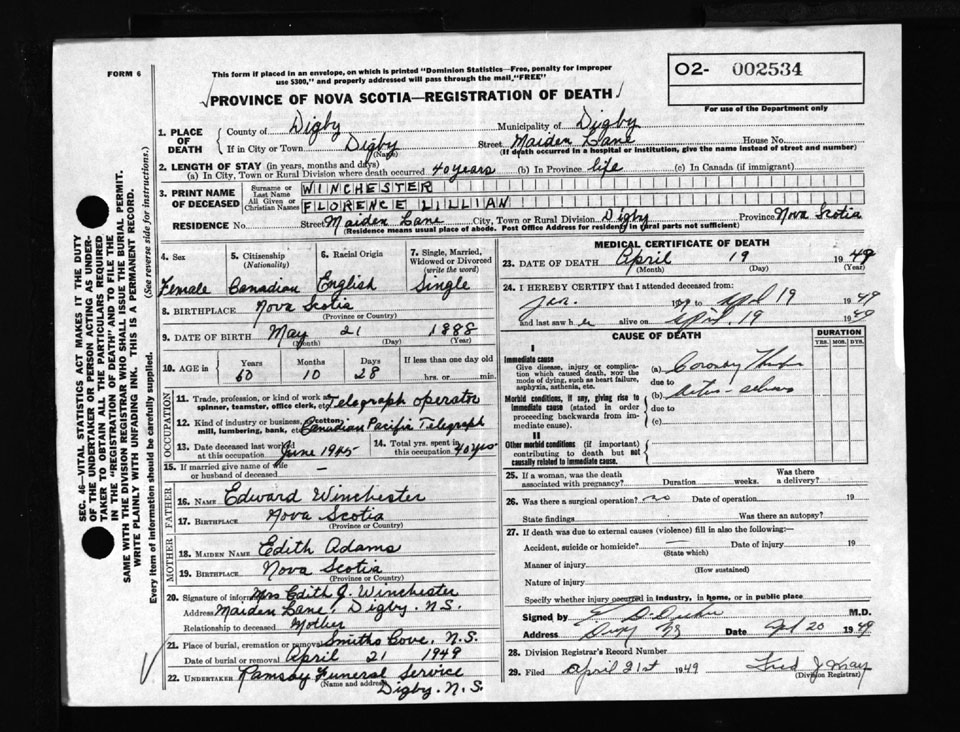 FORM 6
This form if placed in an envelope, on which is printed "Dominion Statistics—Free, penalty for improper
use $300," and properly addressed will pass through the mail, "FREE"
O2- 002534
For use of the Department only
PROVINCE OF NOVA SCOTIA—REGISTRATION OF DEATH
1. PLACE OF DEATH County of Digby Municipality of Digby
If in City or Town Digby (Name) Street Maiden Lane House No.
(If death occurred in a hospital or institution, give the name instead of street and number)
2. LENGTH OF STAY (in years, months and days)
(a) In City, Town or Rural Division where death occurred 40 years (b) In Province life (c) In Canada (if immigrant)
3. PRINT NAME OF DECEASED Surname or Last Name WINCHESTER
All Given or Christian Names FLORENCE LILLIAN
RESIDENCE No. Street Maiden Lane City, Town or Rural Division Digby Province Nova Scotia
(Residence means usual place of abode. Post Office Address for residents in rural parts not sufficient)
4. Sex Female
5. Citizenship (Nationality) Canadian
6. Racial Origin English
7. Single, Married, Widowed or Divorced (write the word) Single
8. BIRTHPLACE Nova Scotia
(Province or Country)
9. DATE OF BIRTH May 21 1888
(Month) (Day) (Year)
10. AGE in Years 60 Months 10 Days 28 If less than one day old hrs. or min.
OCCUPATION
11. Trade, profession, or kind of work as spinner, teamster, office clerk, etc. Telegraph operator
12. Kind of industry or business, cotton mill, lumbering, bank, etc. Canadian Pacific Telegraph
13. Date deceased last worked at this occupation June 1945 14. Total yrs. spent in this occupation 40 yrs
15. If married give name of wife or husband of deceased —
FATHER
16. NAME Edward Winchester
17. BIRTHPLACE Nova Scotia
(Province or Country)
MOTHER
18. MAIDEN NAME Edith Adams
19. BIRTHPLACE Nova Scotia
(Province or Country)
20. Signature of informant Mrs Edith J. Winchester
Address Maiden Lane, Digby. N.S.
Relationship to deceased Mother
21. Place of burial, cremation or removal Smiths Cove, N.S.
Date of burial or removal April 21 1949
22. UNDERTAKER Ramsay Funeral Service
(Name and address) Digby. N.S.
MEDICAL CERTIFICATE OF DEATH
23. DATE OF DEATH April 19 1949
(Month) (Day) (Year)
24. I HEREBY CERTIFY that I attended deceased from:
Jan. 19 to April 19 1949
and last saw her alive on April 19 1949
CAUSE OF DEATH
DURATION
YRS. MOS. DYS.
I
Immediate cause
Give disease, injury or complication which caused death, NOT the mode of dying, such as heart failure, asphyxia, asthenia, etc.
(a) Coronary
due to
Morbid conditions, if any, giving rise to immediate cause (stated in order proceeding backwards from immediate cause).
(b)
due to
(c)
II
Other morbid conditions (if important) contributing to death but not causally related to immediate cause.
25. If a woman, was the death associated with pregnancy? Duration weeks. Was there a delivery?
26. Was there a surgical operation? no Date of operation 19
State findings Was there an autopsy?
27. If death was due to external causes (violence) fill in also the following:—
Accident, suicide or homicide? — Date of injury 19
(State which)
Manner of injury
(How sustained)
Nature of injury
Specify whether injury occurred in industry, in home, or in public place
Signed by M.D.
Address Date Apl 20 1949
28. Division Registrar's Record Number
29. Filed April 21st 1949 Fred J May
(Division Registrar)
SEC. 46—VITAL STATISTICS ACT MAKES IT THE DUTY
OF THE UNDERTAKER OR PERSON ACTING AS UNDER-
TAKER TO OBTAIN ALL THE PARTICULARS REQUIRED
IN THE "REGISTRATION OF DEATH" AND TO FILE THE
SAME WITH THE DIVISION REGISTRAR WHO SHALL ISSUE THE BURIAL PERMIT.
WRITE PLAINLY WITH UNFADING INK. THIS IS A PERMANENT RECORD.
Every item of information should be carefully supplied. (See reverse side for instructions.)